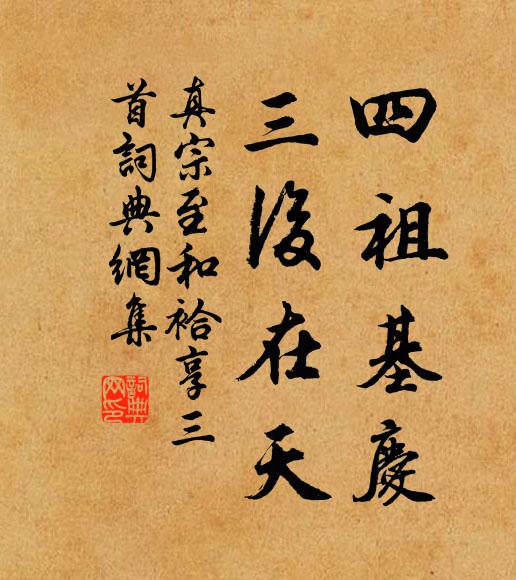 四祖基慶
三後在天
真宗至和祫享三
首詞典網集
詞典网印